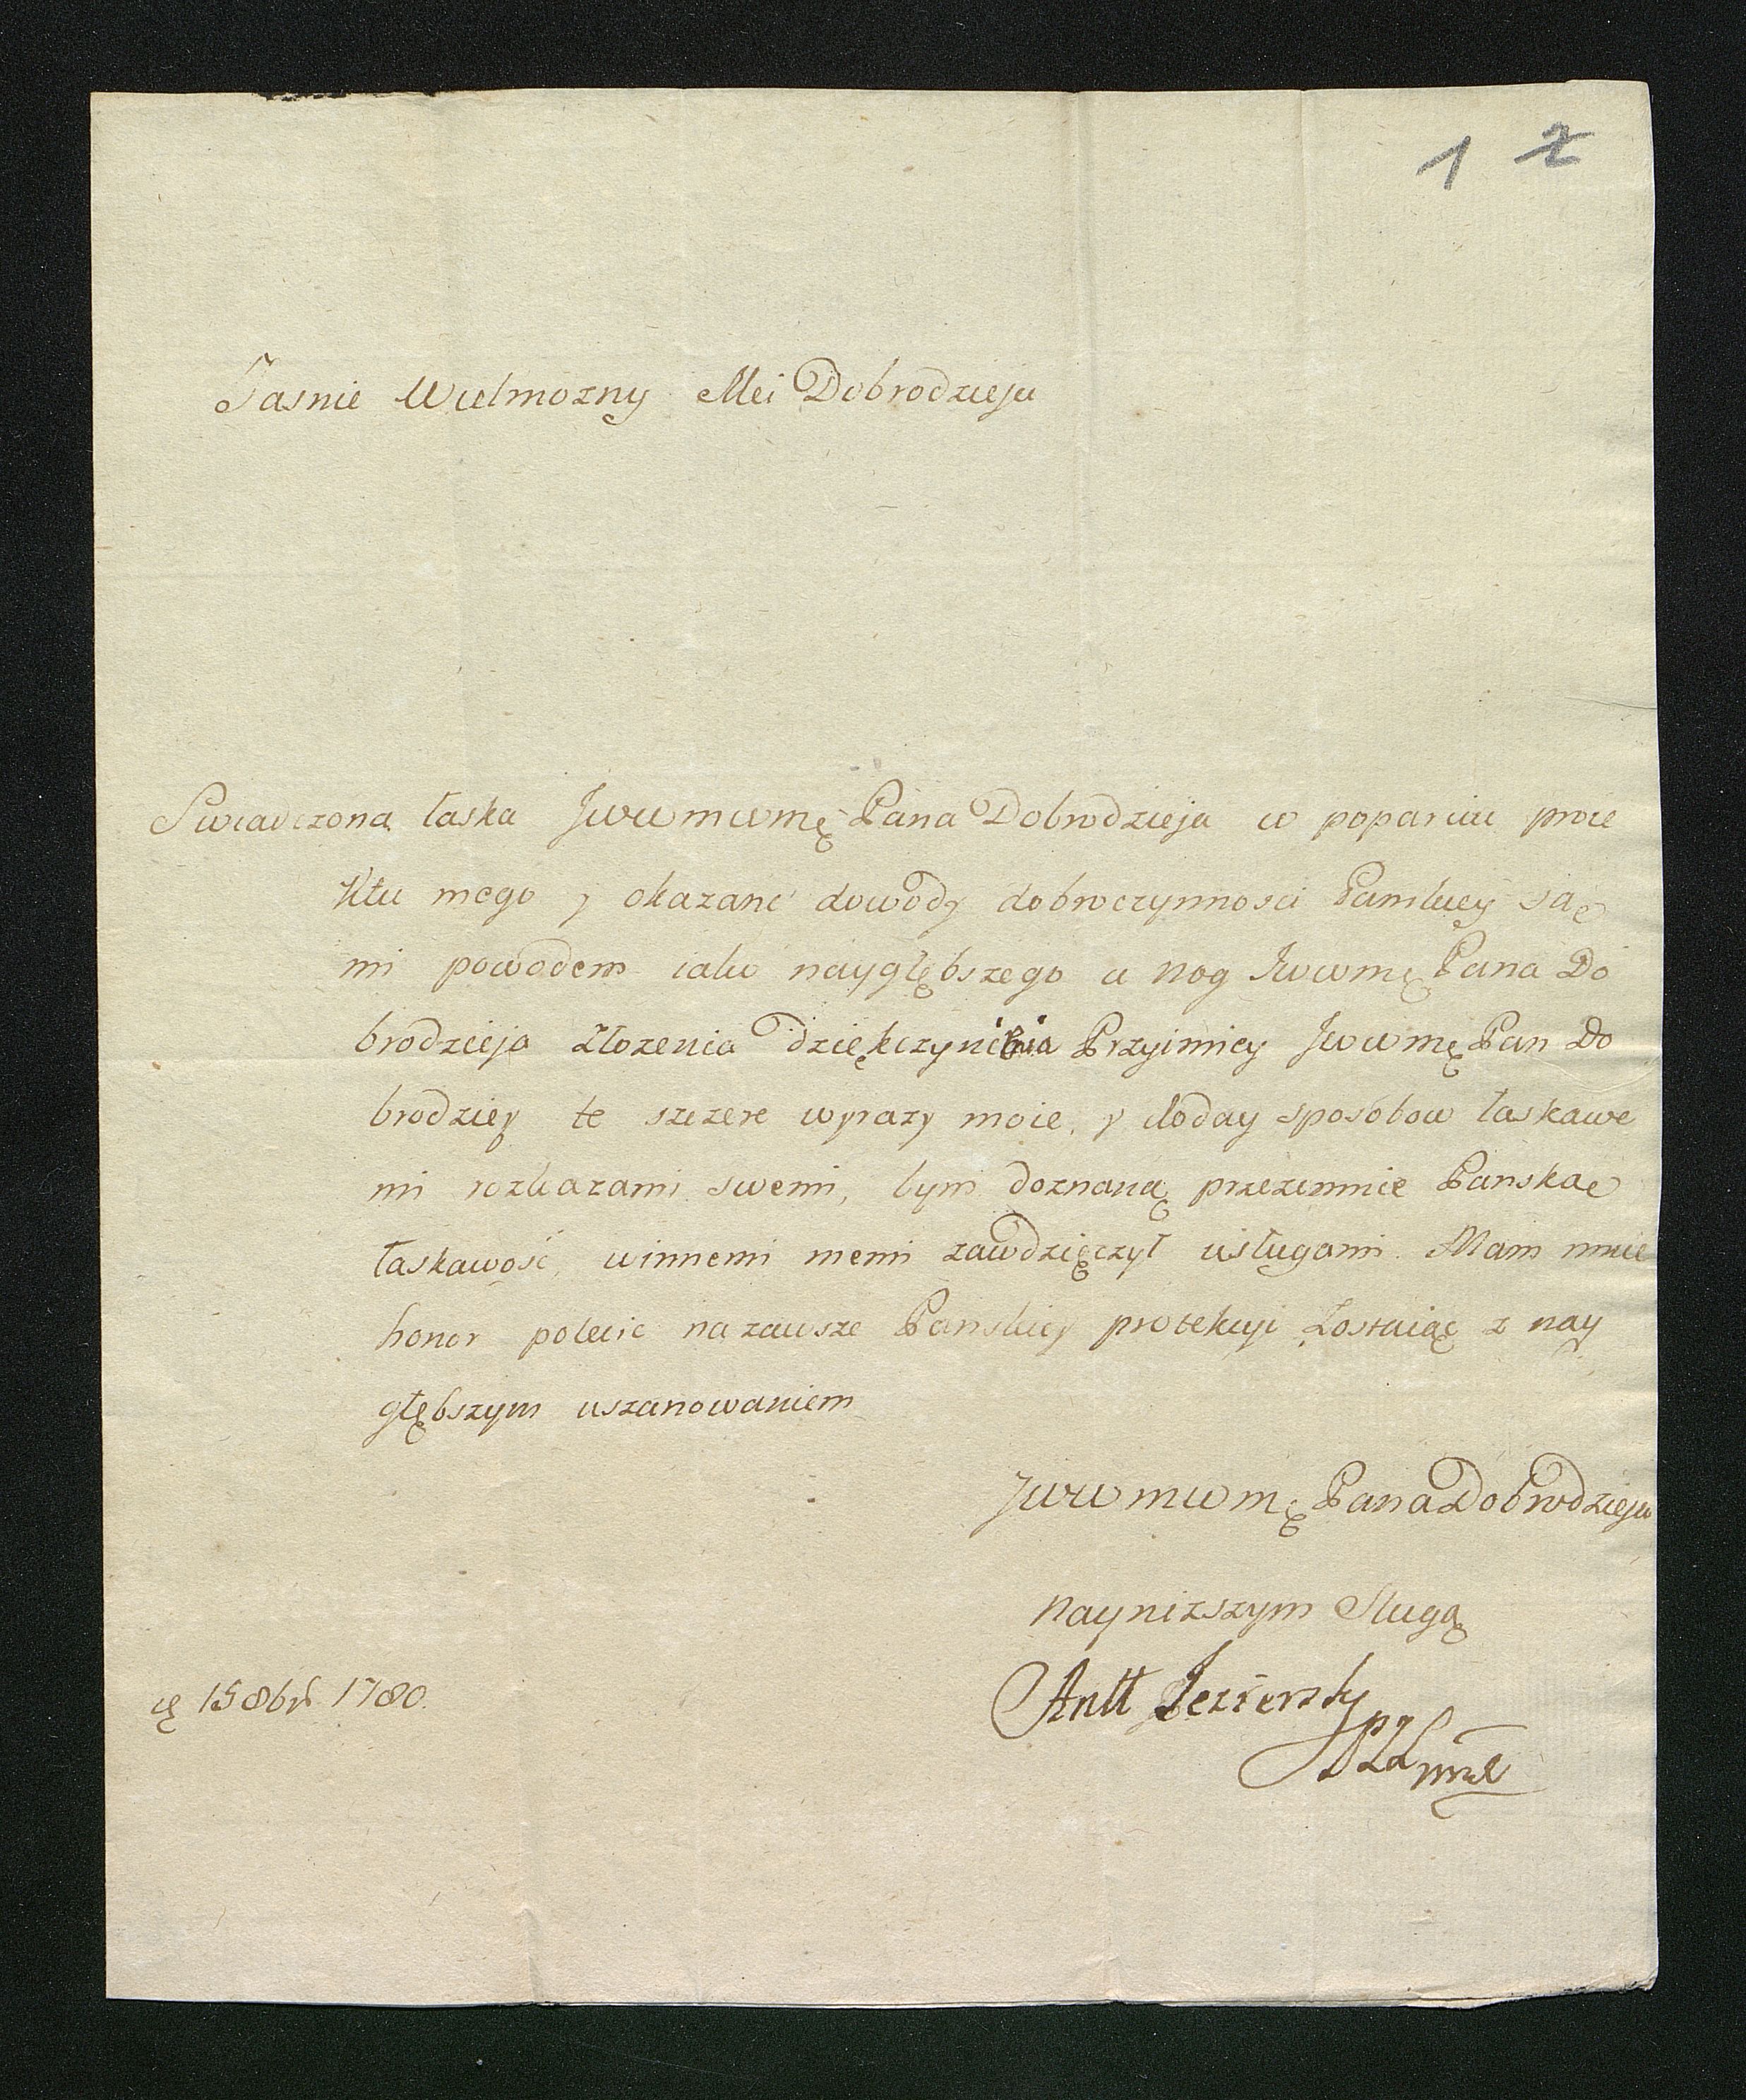 1 2
Jasnie Wielmozny Mci Dobrodzieju
Swiadczona łaska JWWMWMę Pana Dobrodzieja w poparciu proie
ktu mego y okazane dowody dobroczynnosci Panskiey są
mi powodem iako nayglębszego u nog JWWMę Pana Do
brodzieja złozenia dziękczynienia Przyimiey JWWMę Pan Do
brodziey te szczere wyrazy moie, y doday sposobow łaskawe
mi rozkazami swemi, bym doznaną przezemnie Panską
łaskawość, winnemi memi zawdzięczył usługami. Mam mnie
honor polecic na zawsze Panskiey protekcyi zostaiąc z nay
głębszym uszanowaniem
JWWMWMę Pana Dobrodzieja
nayniższym Slugą
Antt Jezierski
15 8br 1780.